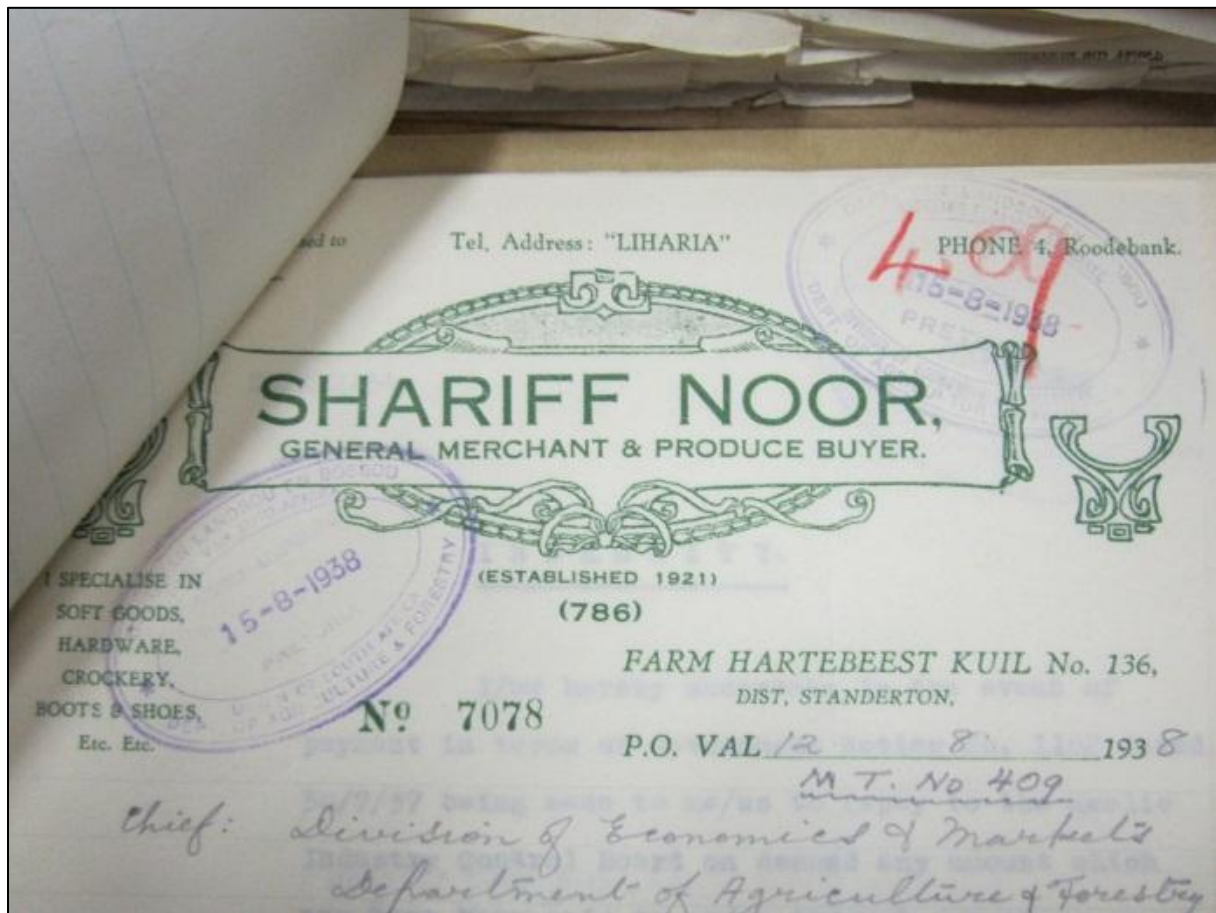 Tel. Address: "LIHARIA"
PHONE 4, Roodebank.
4.09
15-8-1938
SHARIFF NOOR,
GENERAL MERCHANT & PRODUCE BUYER.
(ESTABLISHED 1921)
(786)
I SPECIALISE IN
SOFT GOODS,
HARDWARE,
CROCKERY,
BOOTS & SHOES,
Etc. Etc.
15-8-1938
UNION OF SOUTH AFRICA
DEPT. OF AGRICULTURE & FORESTRY
FARM HARTEBEEST KUIL No. 136,
DIST, STANDERTON,
Nº 7078
P.O. VAL 12 8 1938
M T. No 409
Chief: Division of Economics & Markets
Department of Agriculture & Forestry